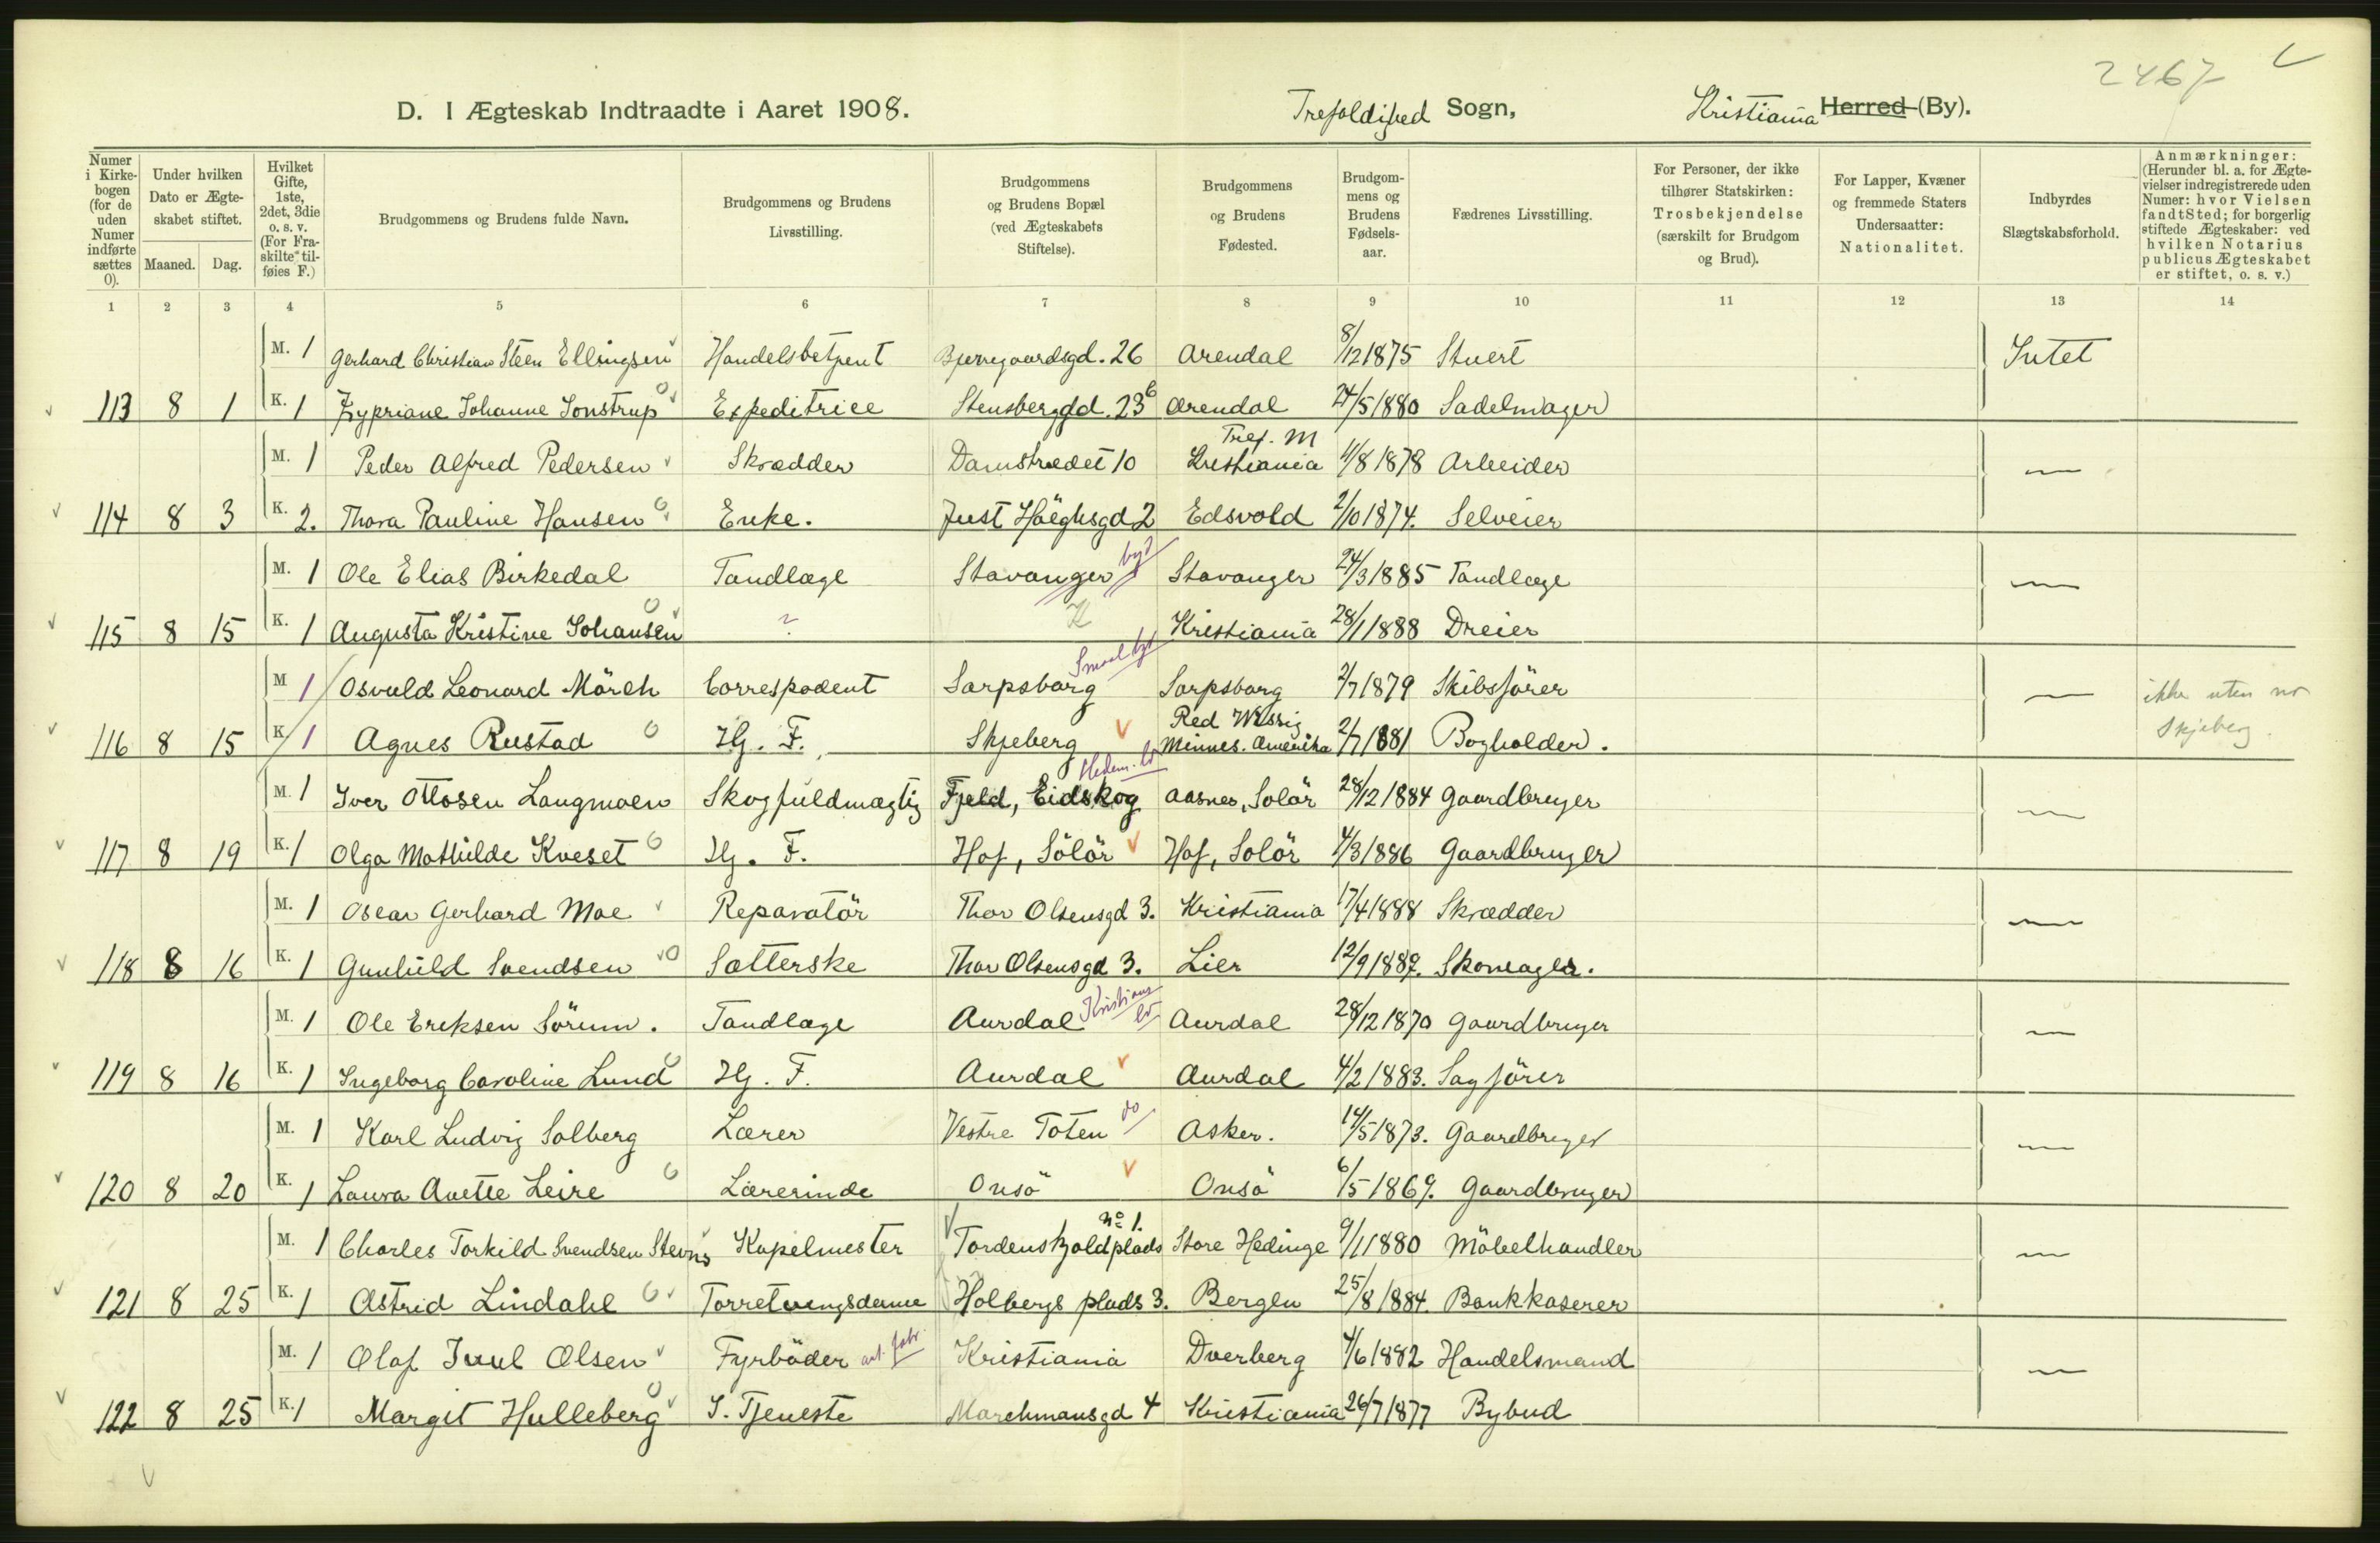 2467
D. I Ægteskab Indtraadte i Aaret 1908.
Trefoldighed Sogn,
Kristiania Herred (By).
Numer i Kirkebogen (for de uden Numer indførte sættes 0).
Under hvilken Dato er Ægteskabet stiftet.
Maaned. Dag.
Hvilket Gifte, 1ste, 2det, 3die o. s. v. (For Fraskilte tilføies F.)
Brudgommens og Brudens fulde Navn.
Brudgommens og Brudens Livsstilling.
Brudgommens og Brudens Bopæl (ved Ægteskabets Stiftelse).
Brudgommens og Brudens Fødested.
Brudgommens og Brudens Fødselsaar.
Fædrenes Livsstilling.
For Personer, der ikke tilhører Statskirken: Trosbekjendelse (særskilt for Brudgom og Brud).
For Lapper, Kvæner og fremmede Staters Undersaatter: Nationalitet.
Indbyrdes Slægtskabsforhold.
Anmærkninger: (Herunder bl. a. for Ægtevielser indregistrerede uden Numer: hvor Vielsen fandt Sted; for borgerlig stiftede Ægteskaber: ved hvilken Notarius publicus Ægteskabet er stiftet, o. s. v.)
1 2 3 4 5 6 7 8 9 10 11 12 13 14
M. 1 Gerhard Christian Steen Ellingsen Handelsbetjent Bjerregaardsgd. 26 Arendal 8/12 1875 Stuert Intet
113 8 1 K. 1 Zypriane Johanne Sonstrup Expeditrice Stensberggd. 23b Arendal 24/5 1880 Sadelmager
M. 1 Peder Alfred Pedersen Skrædder Damstrædet 10 Tref. M Kristiania 11/8 1878 Arbeider —
114 8 3 K. 2. Thora Pauline Hansen Enke. Just Höeghsgd 2 Edsvold 2/10 1874. Selveier
M. 1 Ole Elias Birkedal Tandlæge Stavanger by Stavanger 24/3 1885 Tandlæge —
115 8 15 K. 1 Augusta Kristine Johansen ? K Kristiania 28/1 1888 Dreier
M 1 Osvald Leonard Mörch Correspodent Sarpsborg Smaal. by Sarpsborg 2/7 1879 Skibsförer —
116 8 15 K 1 Agnes Rustad Hj. F. Skjeberg Red Wissig Minnes. Amerika 2/7 1881 Bogholder.
ikke uten no Skjeberg.
M. 1 Iver Ottosen Langmoen Skogfuldmægtig Fjeld, Eidskog Hedem. ld Aasnes, Solör 28/12 1884 Gaardbruger —
117 8 19 K. 1 Olga Mathilde Kveset Hj. F. Hof, Sölör Hof, Solör 4/3 1886 Gaardbruger
M. 1 Oscar Gerhard Moe Reparatör Thor Olsensgd 3. Kristiania 17/4 1888 Skrædder —
118 8 16 K. 1 Gunhild Svendsen Sætterske Thor Olsensgd 3. Lier 12/9 1887. Skomager.
M. 1 Ole Eriksen Sörum. Tandlæge Aurdal Kristians ld Aurdal 28/12 1870 Gaardbruger —
119 8 16 K. 1 Ingeborg Caroline Lund Hj. F. Aurdal Aurdal 4/2 1883. Sagförer
M. 1 Karl Ludvig Solberg Lærer Vestre Toten do Asker. 14/5 1873. Gaardbruger —
120 8 20 K. 1 Laura Anette Leire Lærerinde Onsö Onsö 6/5 1869. Gaardbruger
M. 1 Charles Torkild Svendsen Stevns Kapelmester Tordenskjoldplads No 1. Store Hedinge 9/1 1880 Möbelhandler —
121 8 25 K. 1 Astrid Lindahl Forretningsdame Holbergs plads 3. Bergen 25/8 1884. Bankkaserer
M. 1 Olaf Juul Olsen Fyrböder ant. fabr. Kristiania Dverberg 4/6 1882 Handelsmand —
122 8 25 K. 1 Margit Hulleberg I. Tjeneste Marchmansgd 4 Kristiania 26/7 1877 Bybud